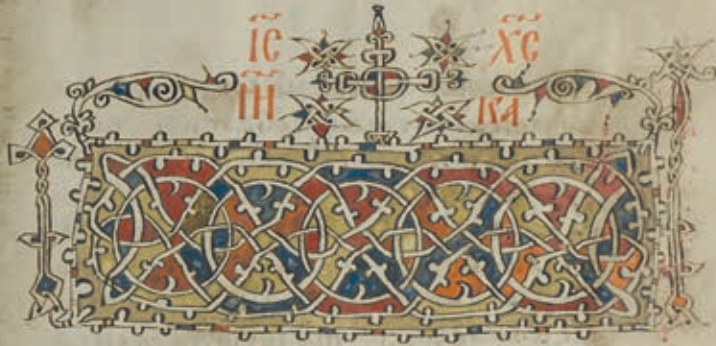 І҃С Х҃С
НИ КА